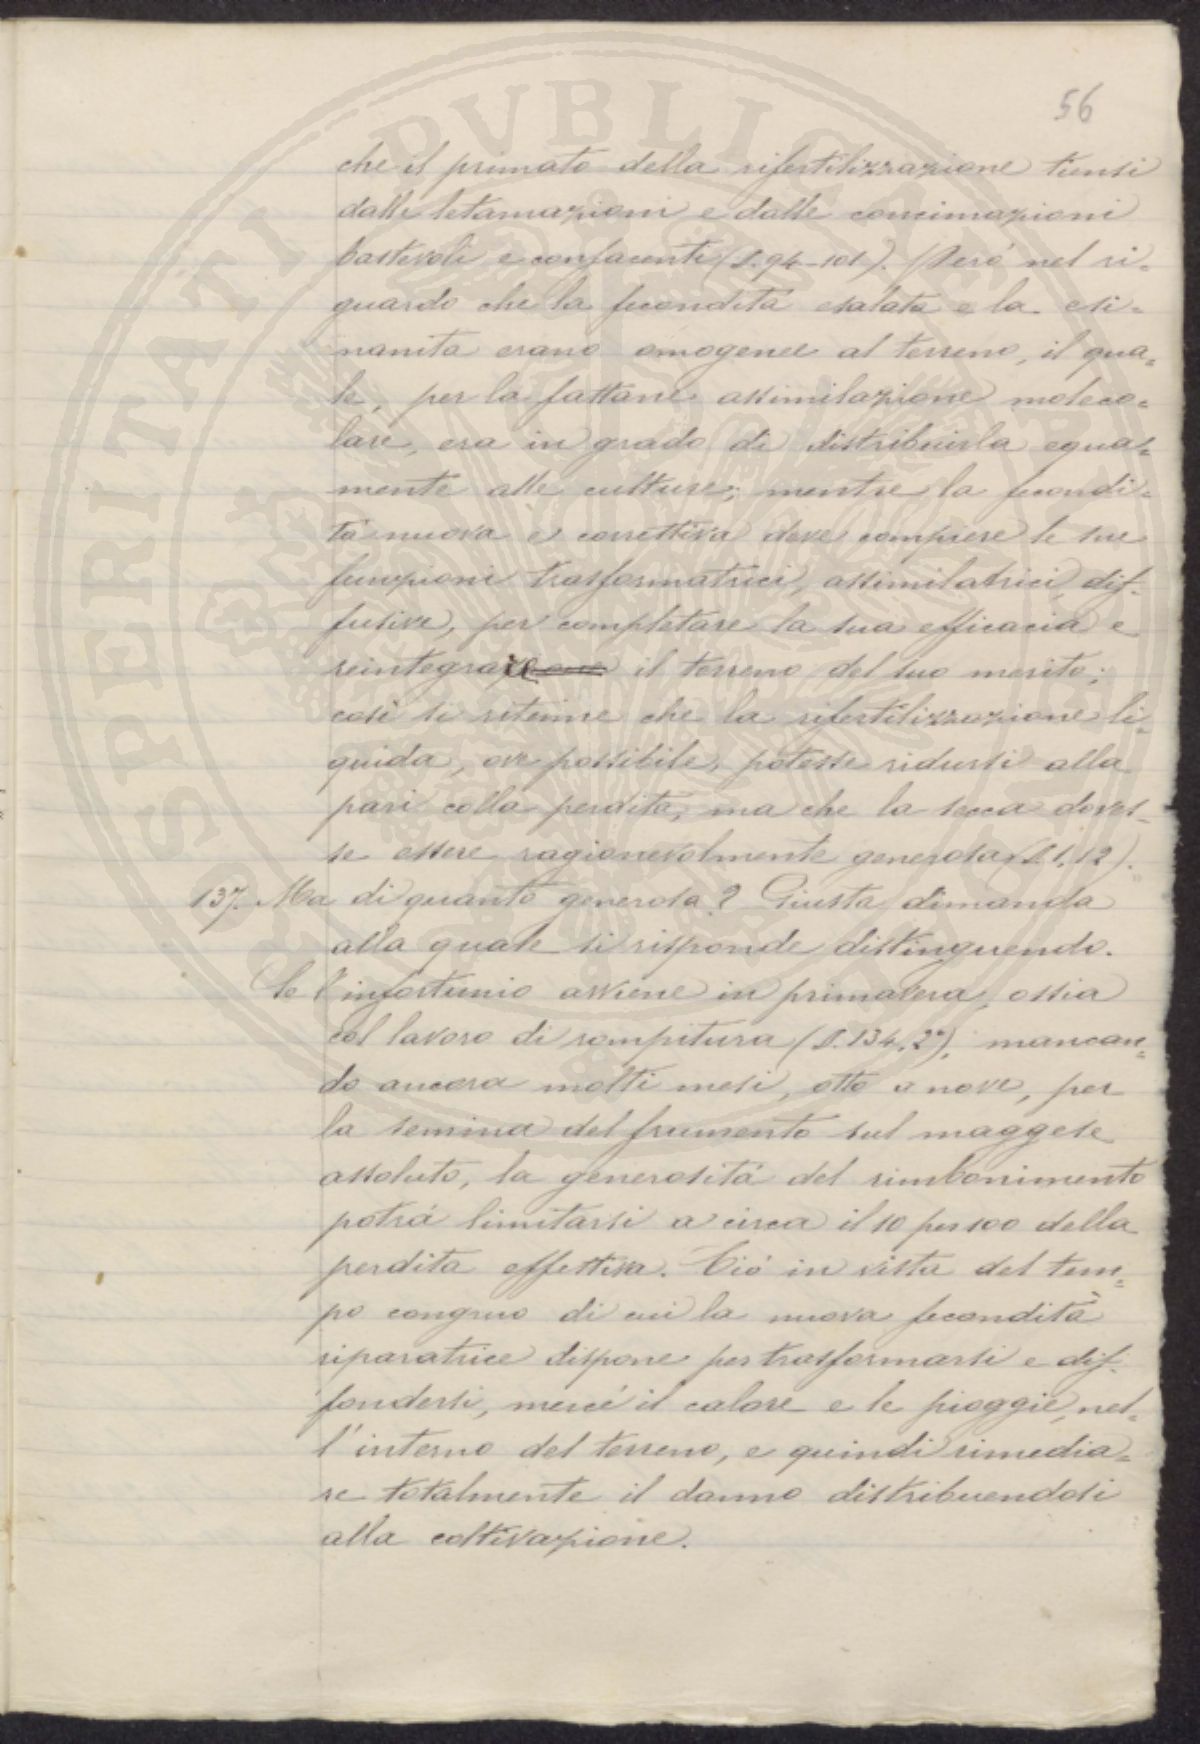 56
che il primato della rifertilizzazione tiensi
dalle letamazioni e dalle concimazioni
bastevoli e confacenti (§. 94-101). Però nel ri-
guardo che la fecondità esalata e la esi-
nanita erano omogenee al terreno, il qua-
le, per la fattane assimilazione moleco-
lare, era in grado di distribuirla equa-
mente alle culture; mentre la fecondi-
tà nuova e correttiva deve compiere le sue
funzioni trasformatrici, assimilatrici, dif-
fusive, per completare la sua efficacia e
reintegrare il terreno del suo merito;
così si ritenne che la rifertilizzazione li-
quida, ove possibile, potesse ridursi alla
pari colla perdita, ma che la secca doves-
se essere ragionevolmente generosa (§. 1, 12).
137. Ma di quanto generosa? Giusta dimanda
alla quale si risponde distinguendo.
Se l'infortunio avviene in primavera, ossia
col lavoro di rompitura (§. 134, 2°), mancan-
do ancora molti mesi, otto o nove, per
la semina del frumento sul maggese
assoluto, la generosità del rimbonimento
potrà limitarsi a circa il 10 per 100 della
perdita effettiva. Ciò in vista del tem-
po congruo di cui la nuova fecondità
riparatrice dispone per trasformarsi e dif-
fondersi, mercé il calore e le pioggie, nel-
l'interno del terreno, e quindi rimedia-
re totalmente il danno distribuendosi
alla coltivazione.
SPERITATI PVBLICAE